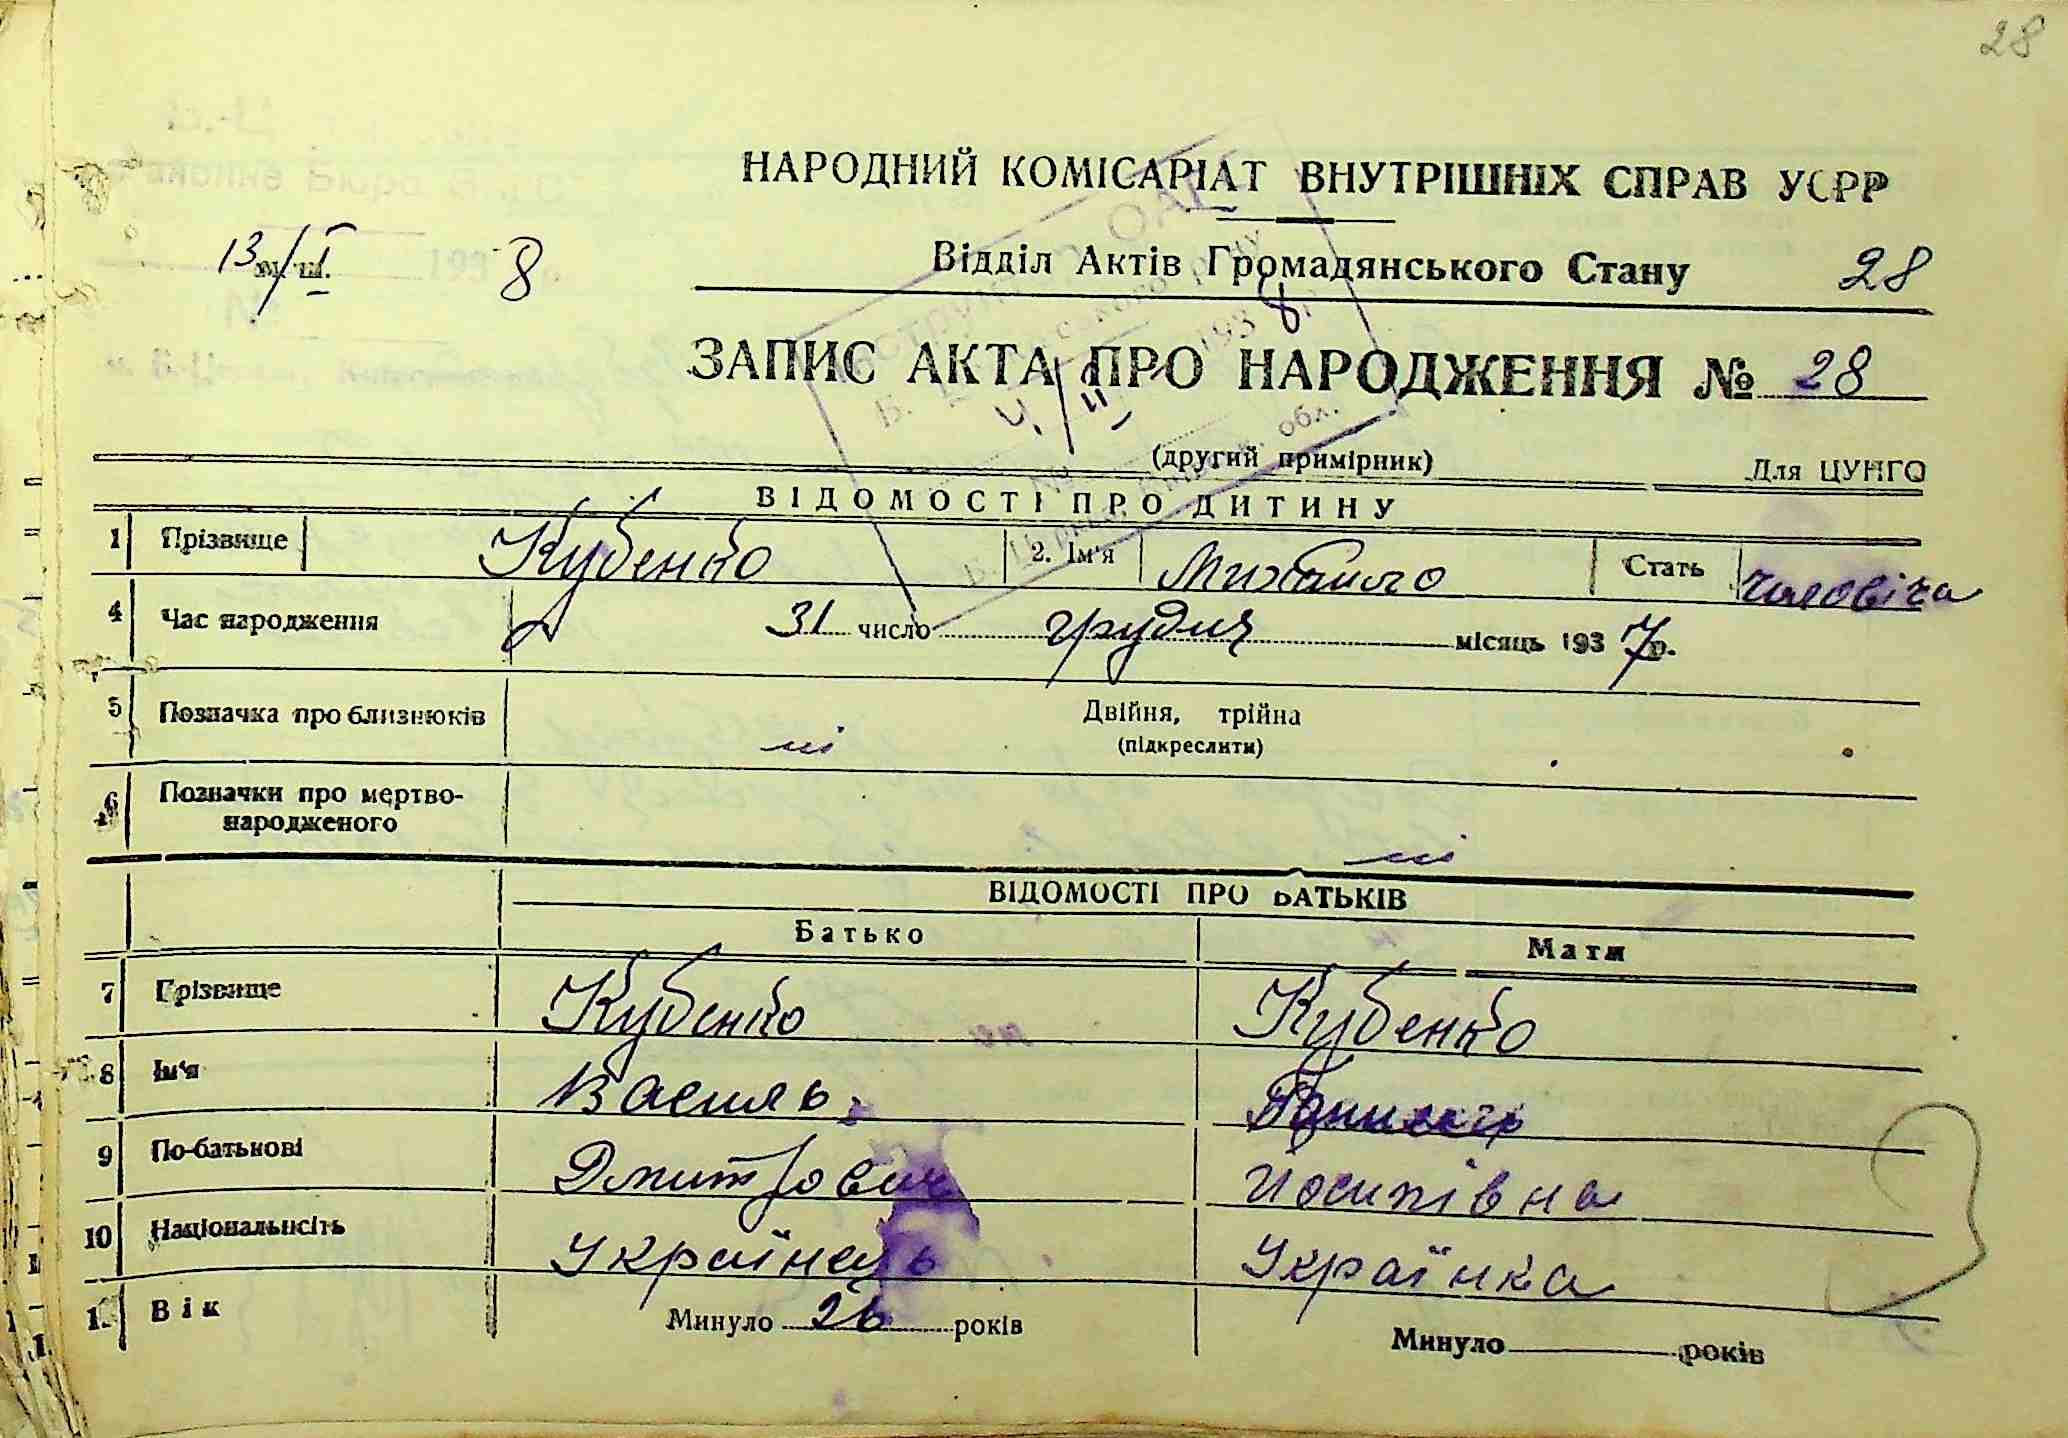 28
НАРОДНИЙ КОМІСАРІАТ ВНУТРІШНІХ СПРАВ УСРР
13/І 1938
Відділ Актів Громадянського Стану 28
ЗАПИС АКТА ПРО НАРОДЖЕННЯ № 28
(другий примірник) Для ЦУНГО
ВІДОМОСТІ ПРО ДИТИНУ
1 Прізвище Кубенко 2. Ім'я Михайло Стать чоловіча
4 Час народження 31 число грудня місяць 1937 р.
5 Позначка про близнюків ні Двійня, трійня
(підкреслити)
6 Позначки про мертво-
народженого ні
ВІДОМОСТІ ПРО БАТЬКІВ
Батько Мати
7 Прізвище Кубенко Кубенко
8 Ім'я Василь
9 По-батькові Дмитрович Йосипівна
10 Національність Українець Українка
11 Вік Минуло 26 років Минуло років